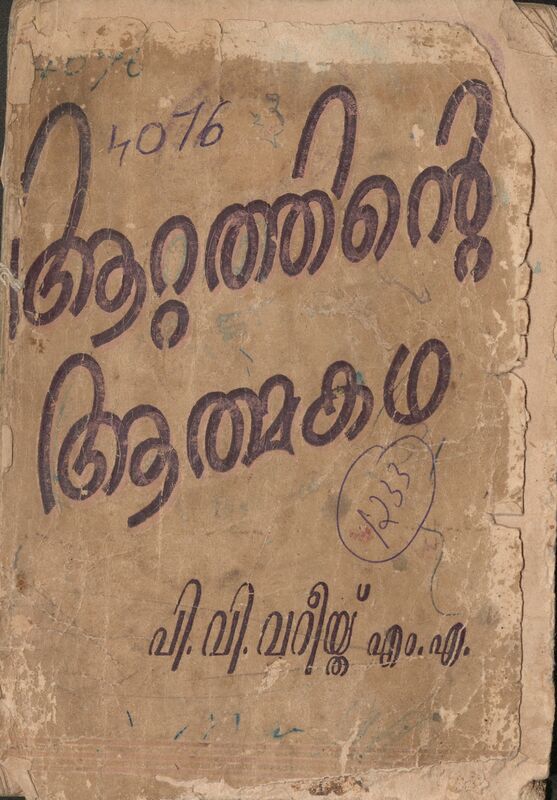 4076
4076
ആറ്റത്തിന്റെ
ആത്മകഥ
1233
പി. വി. വറീയ്ത് എം. എ.